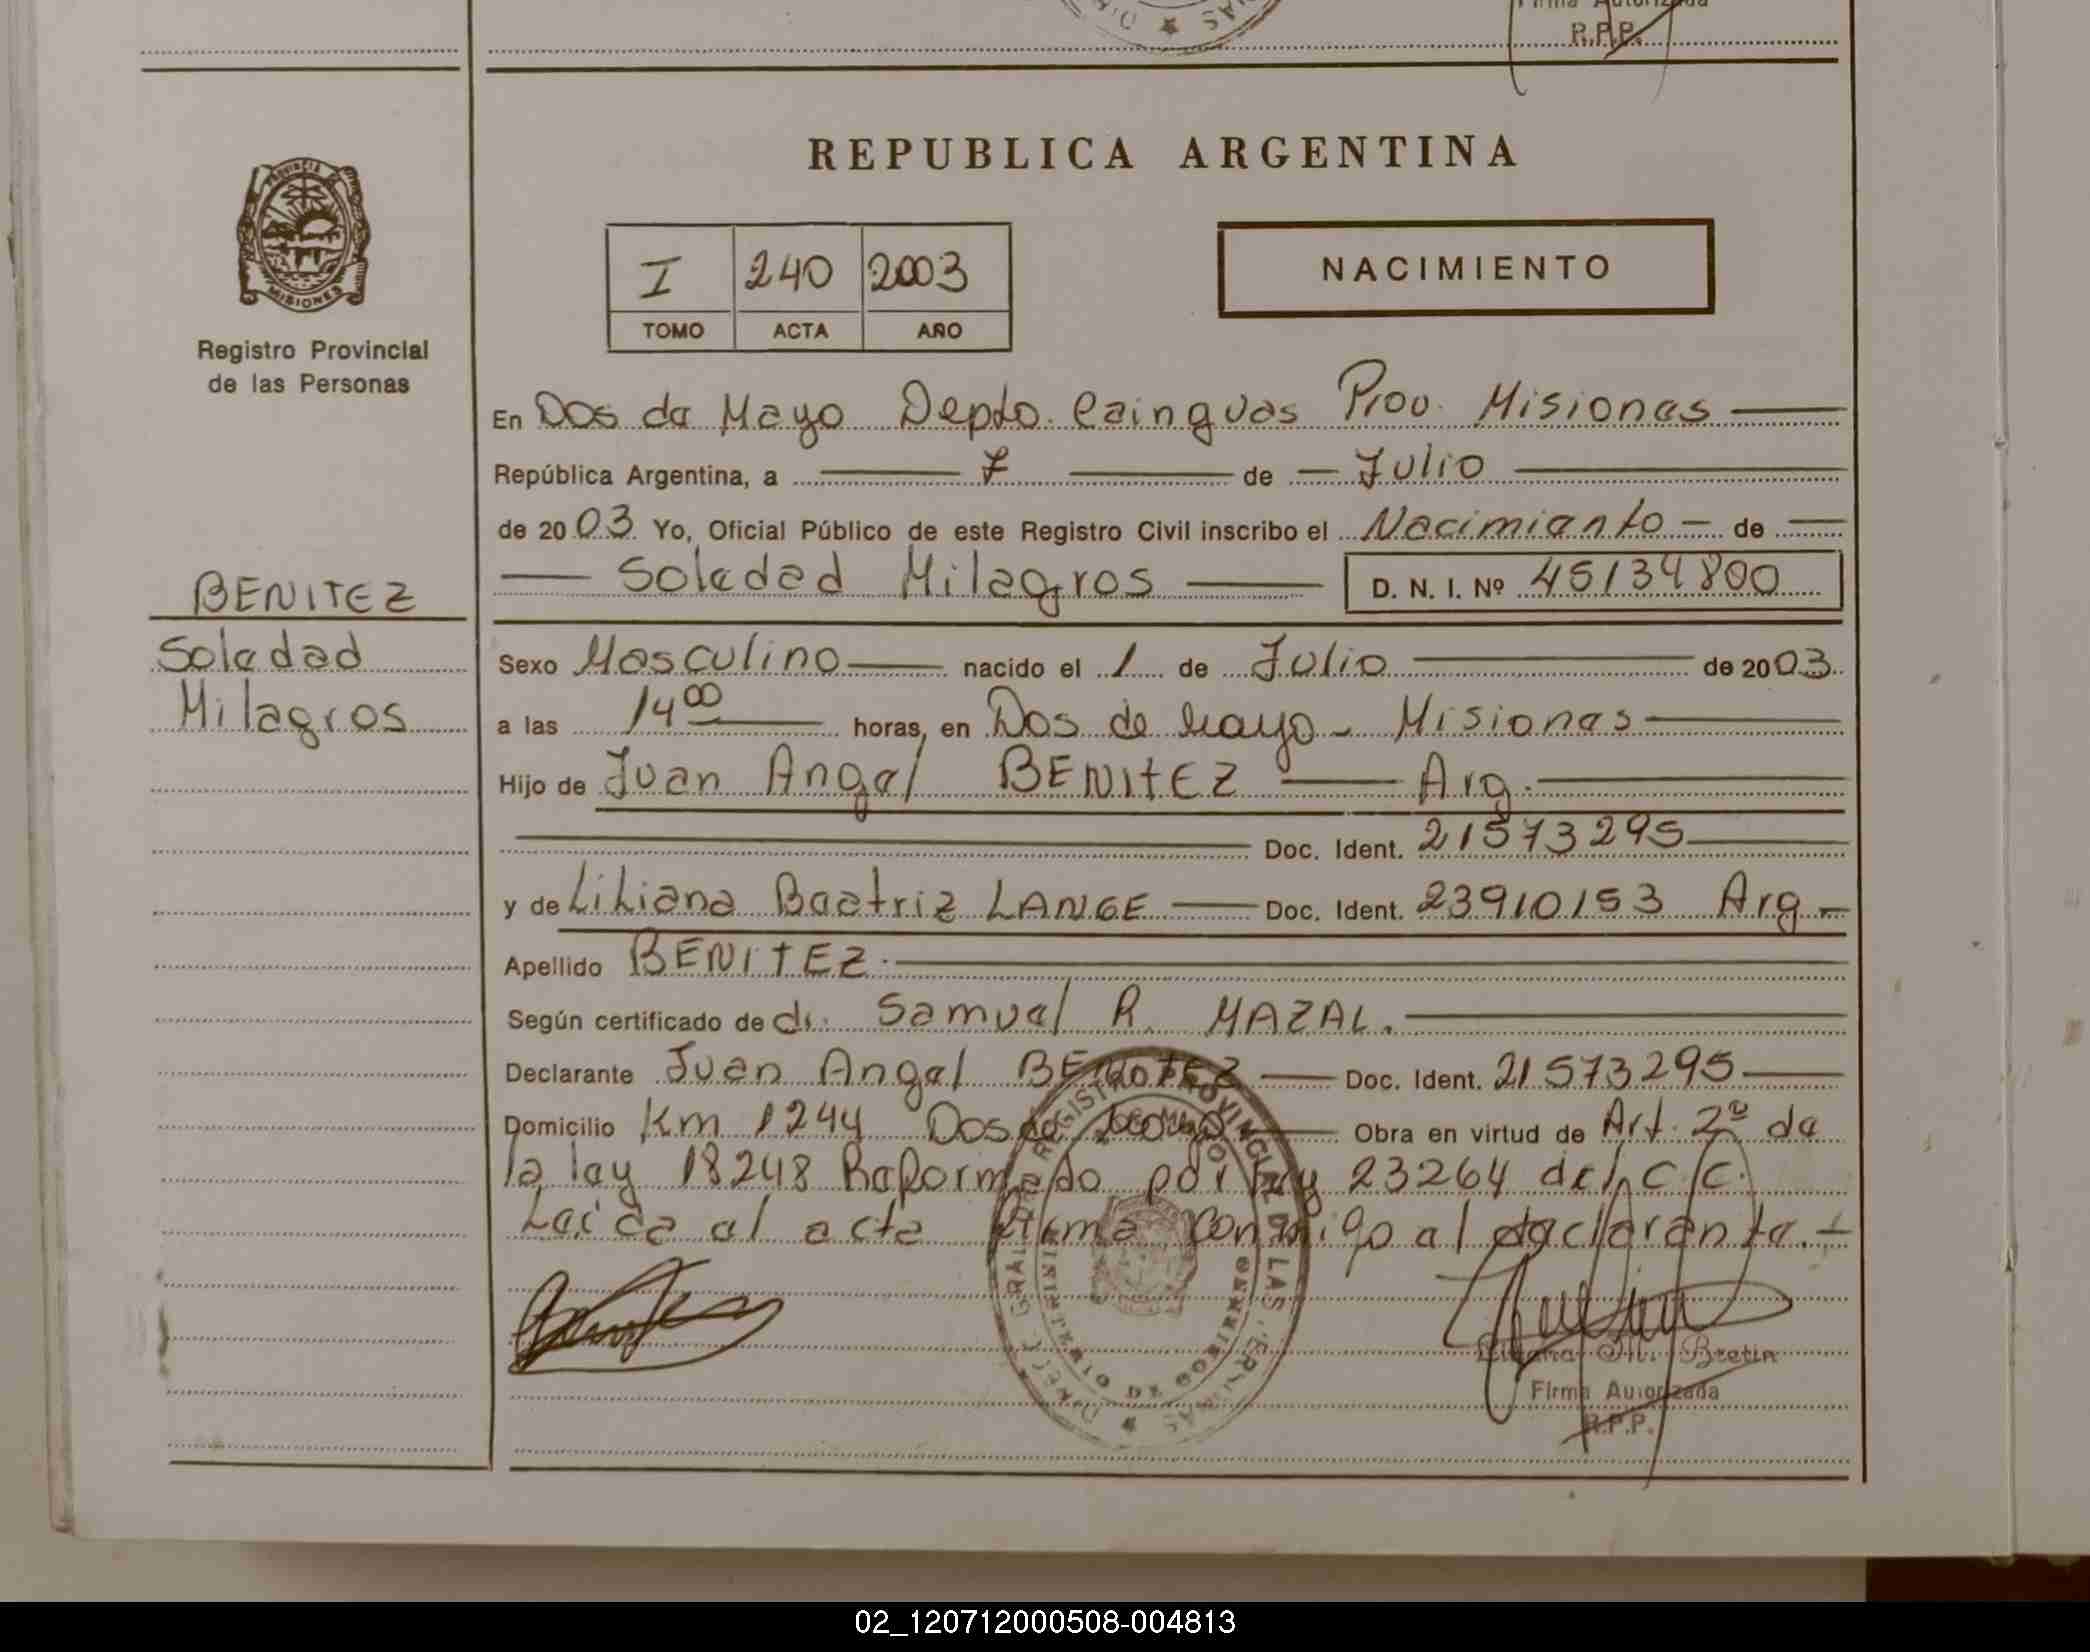 Firma Autorizada
R.P.P.
REPUBLICA ARGENTINA
PROVINCIA DE
MISIONES
Registro Provincial
de las Personas
I 240 2003
TOMO ACTA AÑO
NACIMIENTO
En Dos de Mayo Depto. Cainguas Prov. Misiones
República Argentina, a 7 de Julio
de 2003 Yo, Oficial Público de este Registro Civil inscribo el Nacimiento de
Soledad Milagros D. N. I. Nº 45134800
BENITEZ
Soledad
Milagros
Sexo Masculino nacido el 1 de Julio de 2003
a las 14 00 horas, en Dos de Mayo - Misiones
Hijo de Juan Angel BENITEZ Arg.
Doc. Ident. 21573295
y de Liliana Beatriz LANGE Doc. Ident. 23910153 Arg
Apellido BENITEZ.
Según certificado de dr. Samuel R. MAZAL.
Declarante Juan Angel BENITEZ Doc. Ident. 21573295
Domicilio Km 1244 Dos de Mayo Obra en virtud de Art. 2º de
la ley 18248 Reformado por ley 23264 del C.C.
Leida el acta firma conmigo el declarante.-
DIRECC. GRAL. DEL REGISTRO PROVINCIAL DE LAS PERSONAS
MINISTERIO DE GOBIERNO
Bretin
Firma Autorizada
R.P.P.
02_120712000508-004813